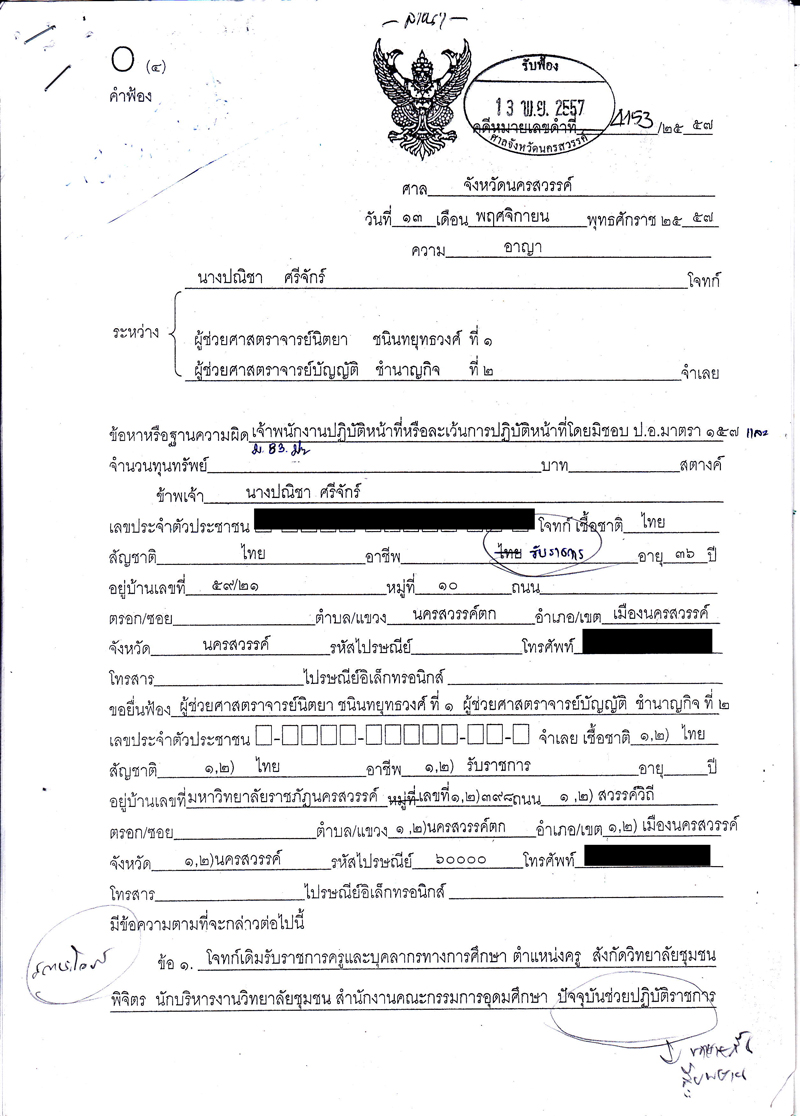 สำเนา
(๔)
คำฟ้อง
รับฟ้อง
13 พ.ย. 2557
คดีหมายเลขดำที่ 4153 /๒๕ ๕๗
ศาลจังหวัดนครสวรรค์
ศาล จังหวัดนครสวรรค์
วันที่ ๑๓ เดือน พฤศจิกายน พุทธศักราช ๒๕ ๕๗
ความ อาญา
นางปณิชา ศรีจักร์ โจทก์
ระหว่าง
ผู้ช่วยศาสตราจารย์นิตยา ชนินทยุทธวงศ์ ที่ ๑
ผู้ช่วยศาสตราจารย์บัญญัติ ชำนาญกิจ ที่ ๒ จำเลย
ข้อหาหรือฐานความผิด เจ้าพนักงานปฏิบัติหน้าที่หรือละเว้นการปฏิบัติหน้าที่โดยมิชอบ ป.อ.มาตรา ๑๕๗ และ
ม. 83
จำนวนทุนทรัพย์ บาท สตางค์
ข้าพเจ้า นางปณิชา ศรีจักร์
เลขประจำตัวประชาชน โจทก์ เชื้อชาติ ไทย
สัญชาติ ไทย อาชีพ ไทย รับราชการ อายุ ๓๖ ปี
อยู่บ้านเลขที่ ๕๙/๒๑ หมู่ที่ ๑๐ ถนน
ตรอก/ซอย ตำบล/แขวง นครสวรรค์ตก อำเภอ/เขต เมืองนครสวรรค์
จังหวัด นครสวรรค์ รหัสไปรษณีย์ โทรศัพท์
โทรสาร ไปรษณีย์อิเล็กทรอนิกส์
ขอยื่นฟ้อง ผู้ช่วยศาสตราจารย์นิตยา ชนินทยุทธวงศ์ ที่ ๑ ผู้ช่วยศาสตราจารย์บัญญัติ ชำนาญกิจ ที่ ๒
เลขประจำตัวประชาชน จำเลย เชื้อชาติ ๑,๒) ไทย
สัญชาติ ๑,๒) ไทย อาชีพ ๑,๒) รับราชการ อายุ ปี
อยู่บ้านเลขที่ มหาวิทยาลัยราชภัฏนครสวรรค์ หมู่ที่ เลขที่๑,๒)๓๙๘ ถนน ๑ ,๒) สวรรค์วิถี
ตรอก/ซอย ตำบล/แขวง ๑ ,๒)นครสวรรค์ตก อำเภอ/เขต ๑,๒) เมืองนครสวรรค์
จังหวัด ๑,๒)นครสวรรค์ รหัสไปรษณีย์ ๖๐๐๐๐ โทรศัพท์
โทรสาร ไปรษณีย์อิเล็กทรอนิกส์
มีข้อความตามที่จะกล่าวต่อไปนี้
ข้อ ๑. โจทก์เดิมรับราชการครูและบุคลากรทางการศึกษา ตำแหน่งครู สังกัดวิทยาลัยชุมชน
พิจิตร นักบริหารงานวิทยาลัยชุมชน สำนักงานคณะกรรมการอุดมศึกษา ปัจจุบันช่วยปฏิบัติราชการ